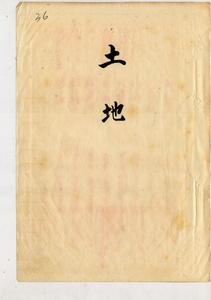 36
土地